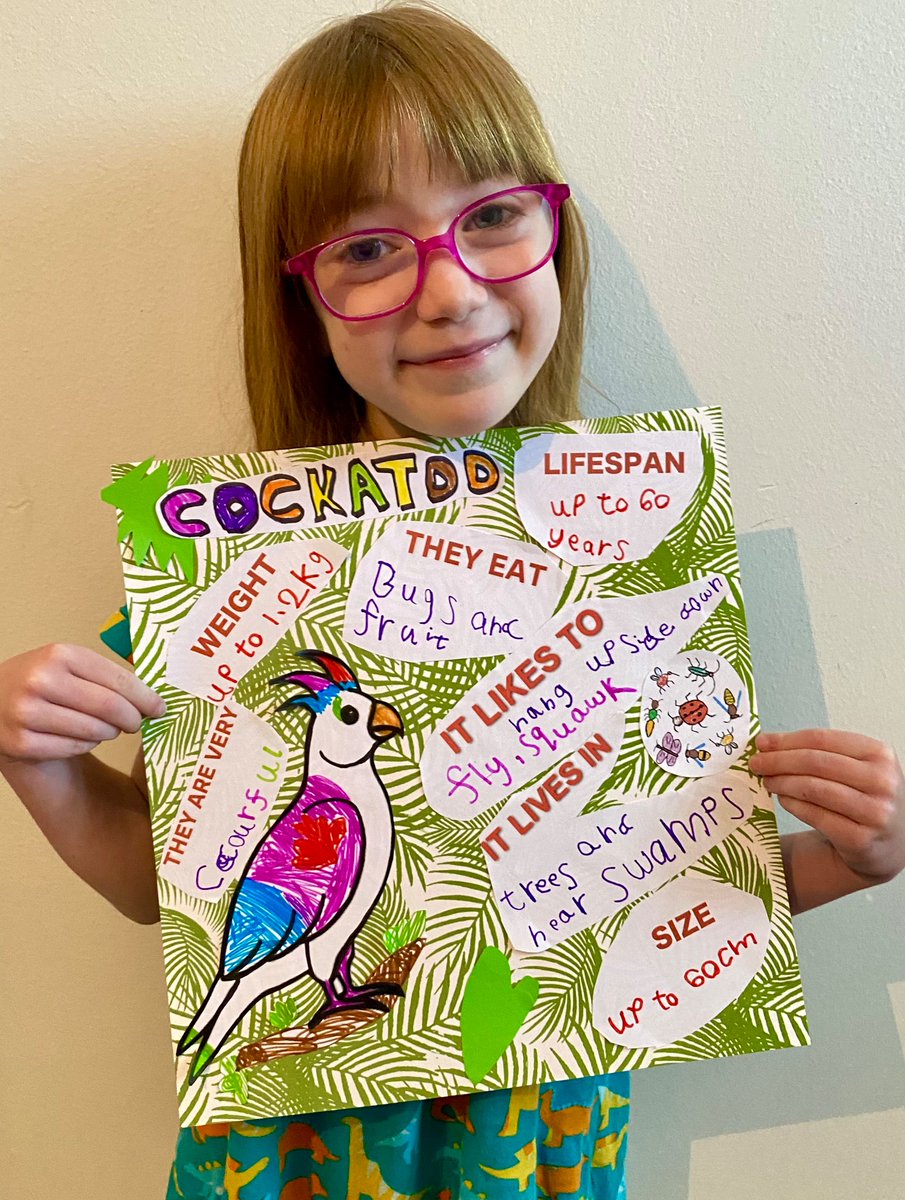 COCKATOO
LIFESPAN
up to 60
years
THEY EAT
Bugs and
fruit
WEIGHT
up to 1.2kg
IT LIKES TO
hang upside down
fly, squawk
THEY ARE VERY
Colourful
IT LIVES IN
trees and
near swamps
SIZE
up to 60cm